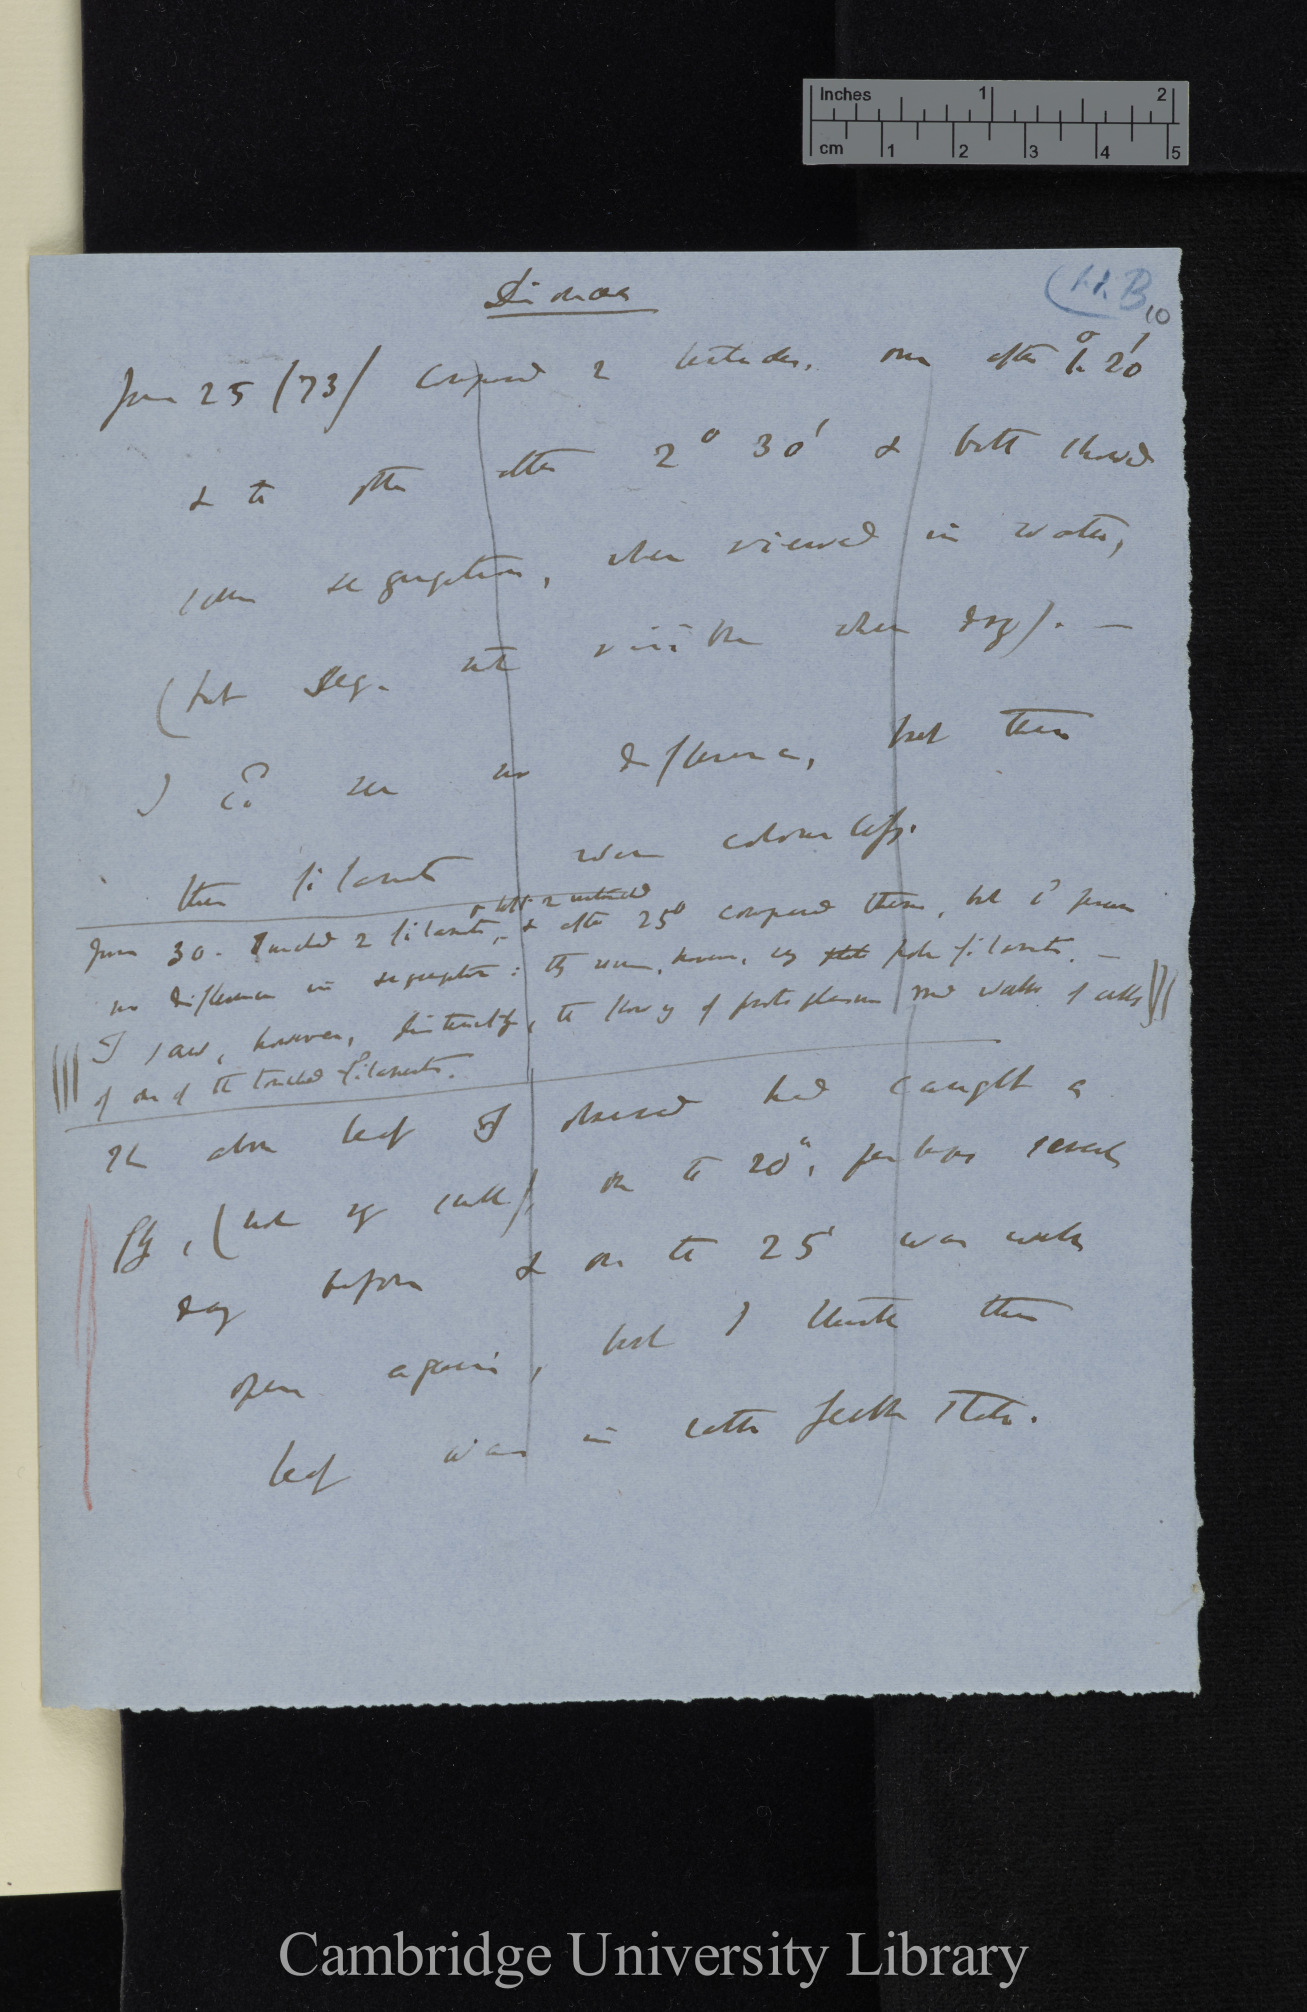 Inches 1 2
cm 1 2 3 4 5
Dionaea
B
10
June 25 (73) Compared 2 one after 1° 20'
& the other after 2° 30' & both showed
some segregation, when viewed in water,
(but seg. not visible when dry). —
I cd see no difference, but then
these filaments were colourless.
& left 2 untouched
June 30. Touched 2 filaments, & after 25° compared them, but cd perceive
no difference in segregation: they were, however, very pale filaments. —
I saw, however, distinctly, the flowing of protoplasm round walls of cells
of one of the touched filaments.
The above leaf I observed had caught a
fly, (not very small), on the 20th, perhaps several
day before & on the 25 was widely
open again, but I think this
leaf was in rather feeble state.
Cambridge University Library